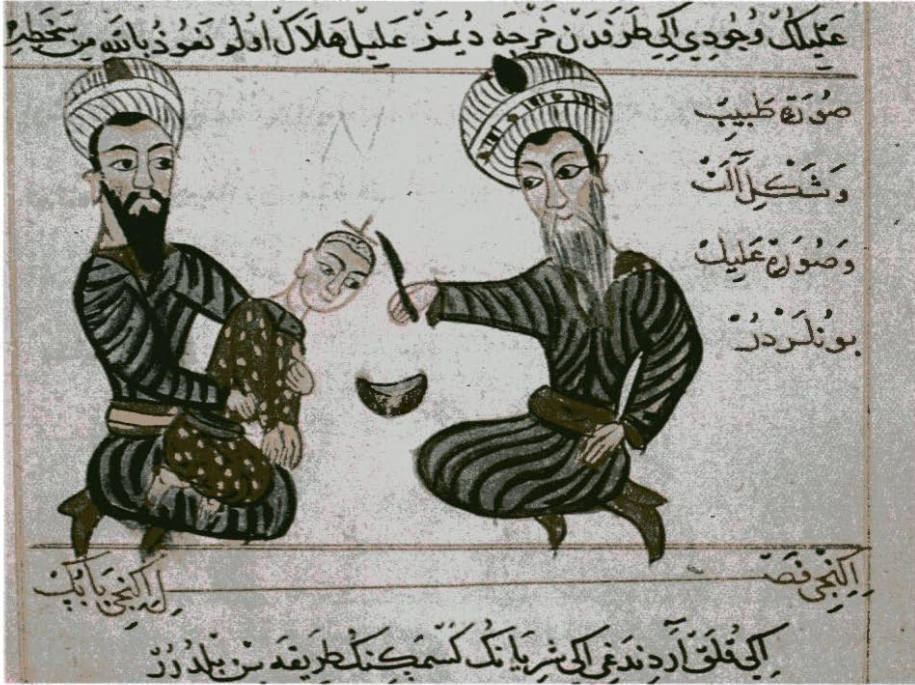 عليلك وجودي اكي طرفدن خرجه ديمز عليل هلاك اولو نعوذ بالله من سخطه
صورة طبيب
وشكل آلت
وصورة عليل
بونلردر
اكنجي فصل اكنجي بابك
اكي قلق آردندغي اكي شريانك كسمكنك طريقه سن بلدرر